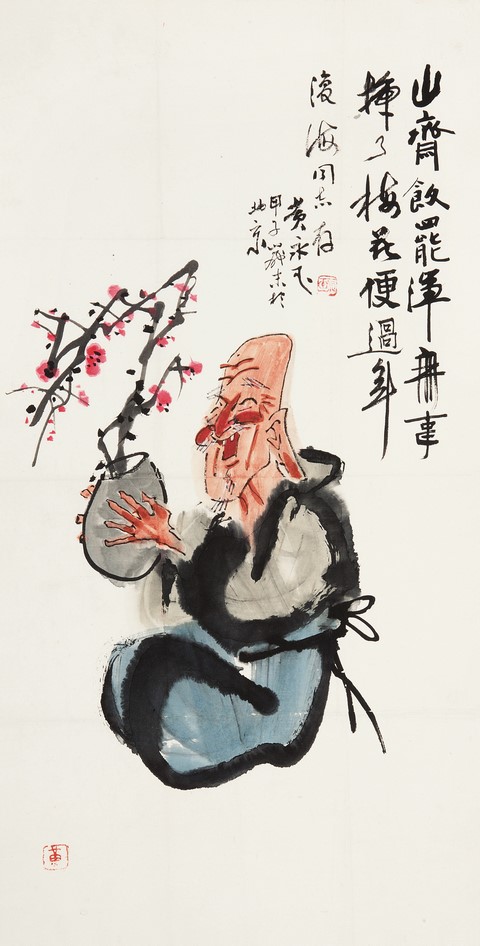 山齋飯罷渾無事
插了梅花便過年
海同志存
黃永玉
甲子歲末於
北京
黃